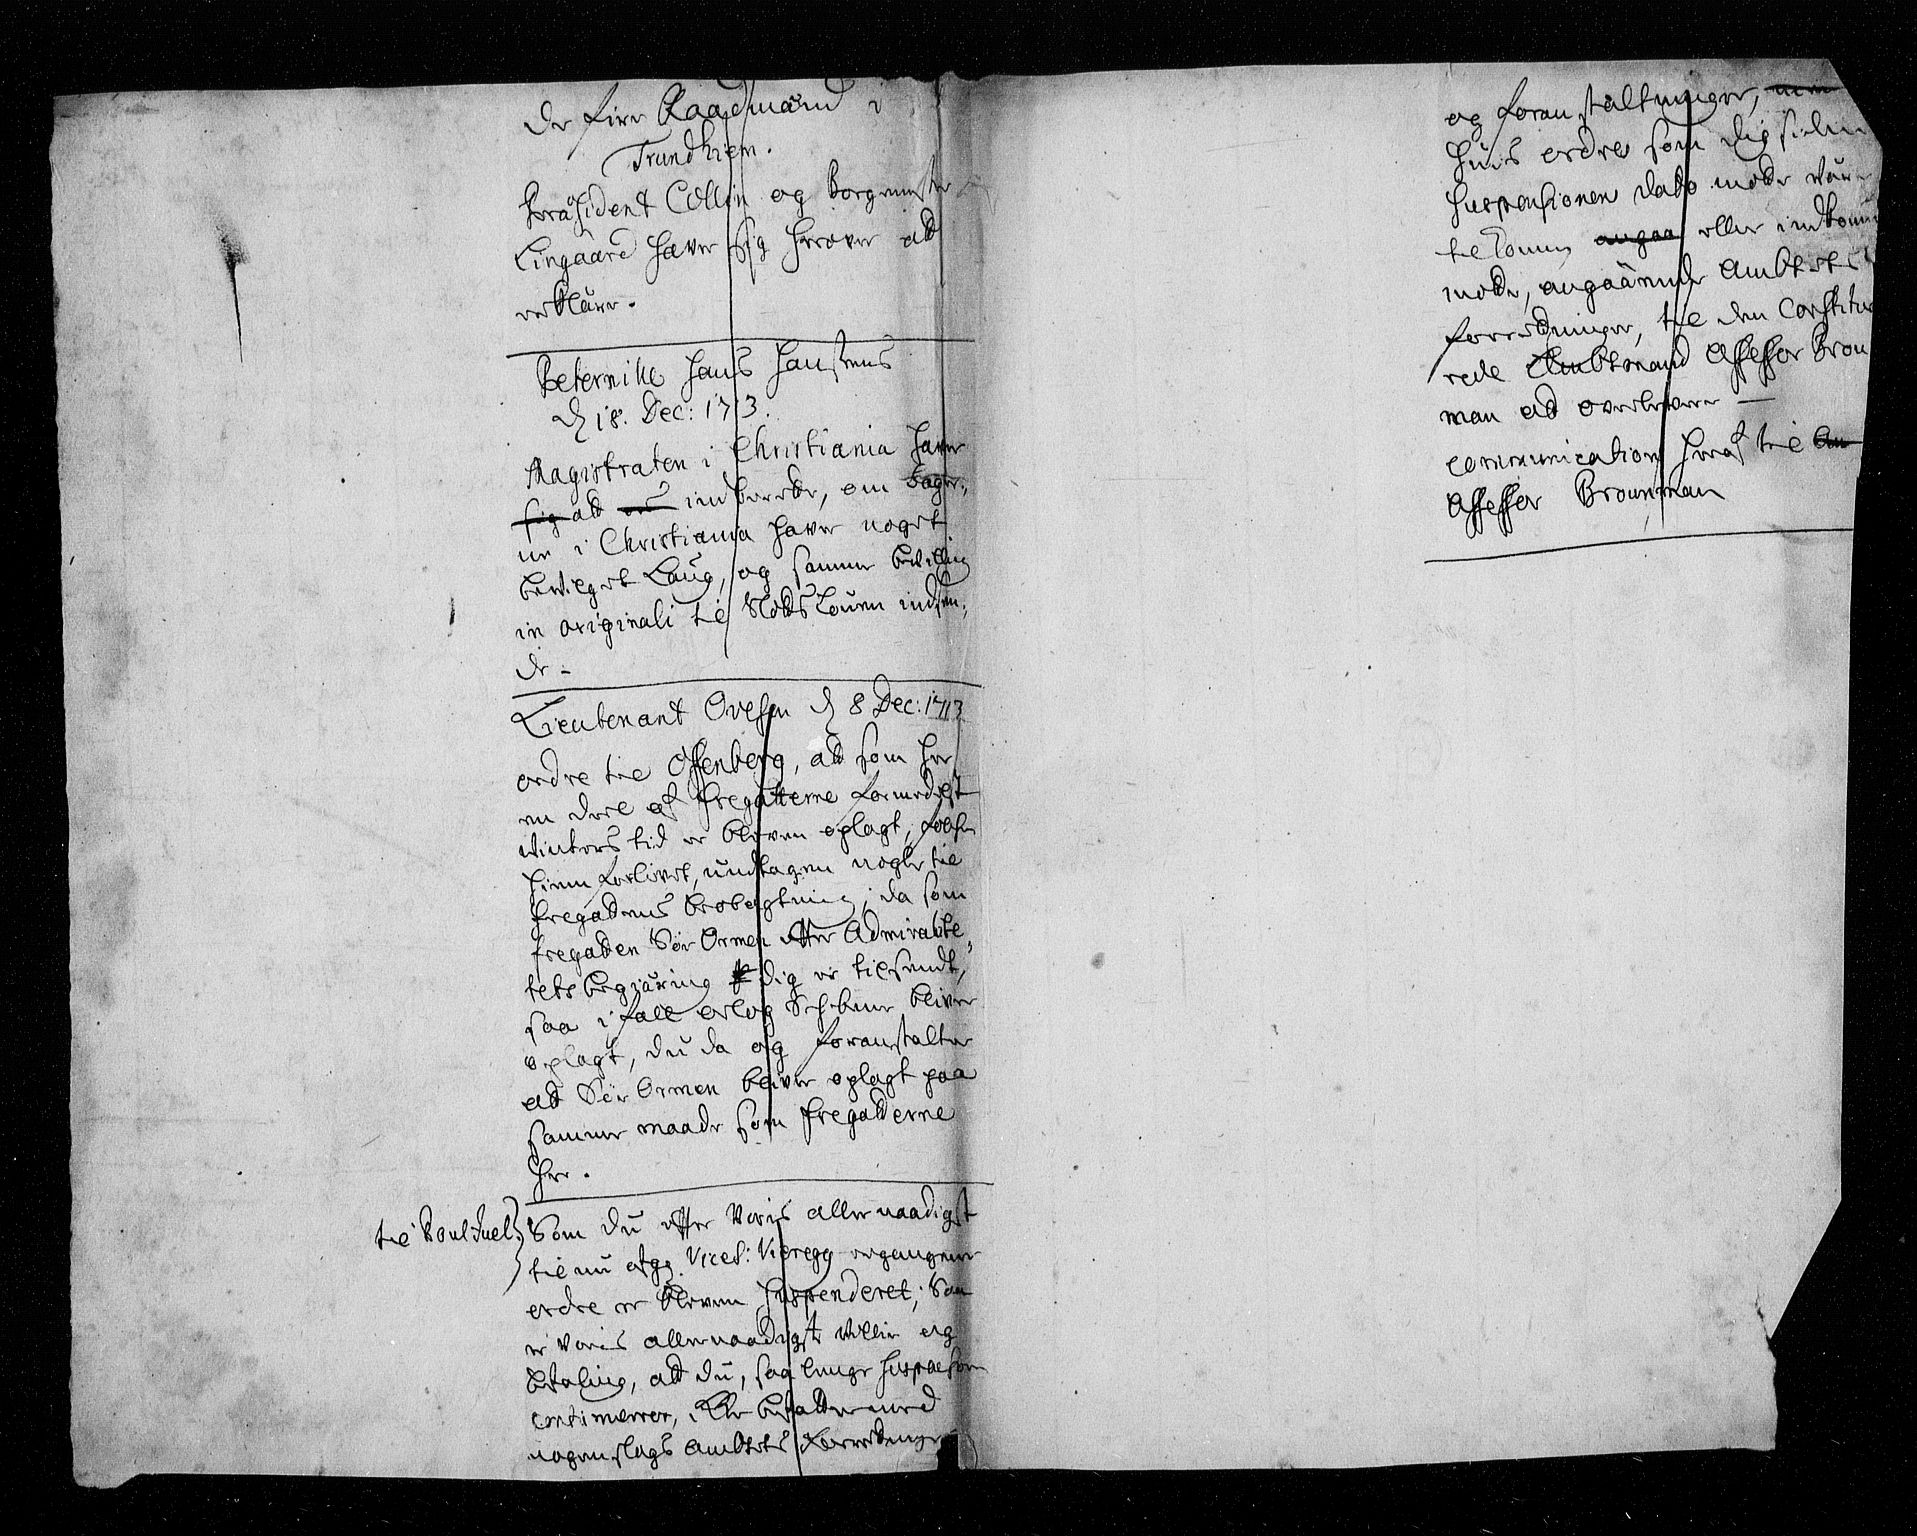 De fire Raadmænd i
Trundhiem.
Præsident Collin og Borgemester
Lingaard haver sig herover at
erklære.
Beternille Hans Hansens
d 18. Dec: 1713.
Magistraten i Christiania haver
sig at indberette, om Bager,,
ne i Christiania haver noget
bevilget Laug, og samme bevilling
in originali til Slotsloven indsen,,
de.
Lieutenant Ovesen d 8 Dec: 1713
ordre til Ossenberg, at som her
en deel af Fregatterne formedelst
Winters tid er bleven oplagt, folchen
hiem forlovet, undtagen nogle til
Fregattens beobagtning; da som
Fregatten Sør Ormen efter Admiralite,,
tets begiæring dig er tilsendt,
saa i fald orlog Schibene bliver
oplagt, du da og foranstalter
at Sør Ormen bliver oplagt paa
samme maade som Fregatterne
her.
til Poul Juel.
Som du efter Voris allernaadigst
til nu afg. Vices: Vieregg ergangene
ordre er bleven suspenderet; Saa
er Voris allernaadigste Villie og
befaling, at du, saa lenge suspensionen
continuerer, icke befatter med
nogen slags Ambtets forretninger
og foranstaltninger,
huis ordre som dig siden
suspensionen dato motte være
tilkommen angaa eller indkomme
motte, angaaende Ambtets
forretninger, til den Constitue
rede Ambtmand Assessor Brou
man at overlevere —
communication heraf til
Assessor Brouman